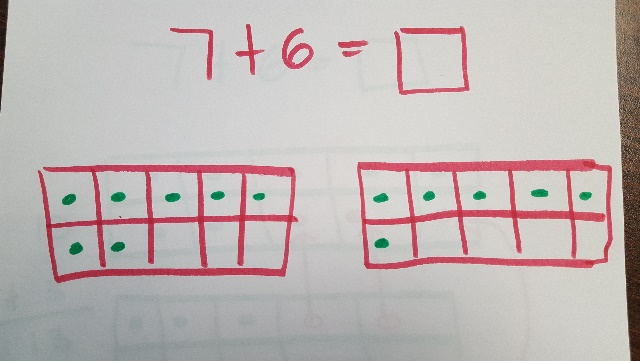 7 + 6 = □